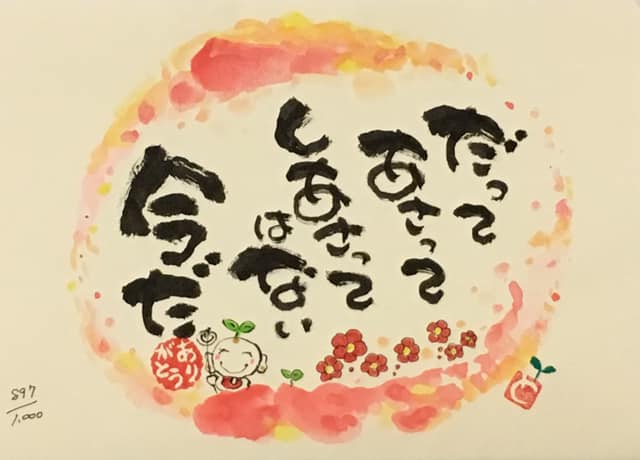 だって
あさって
しあさって
はない
今だ
あり
がとう
1,000